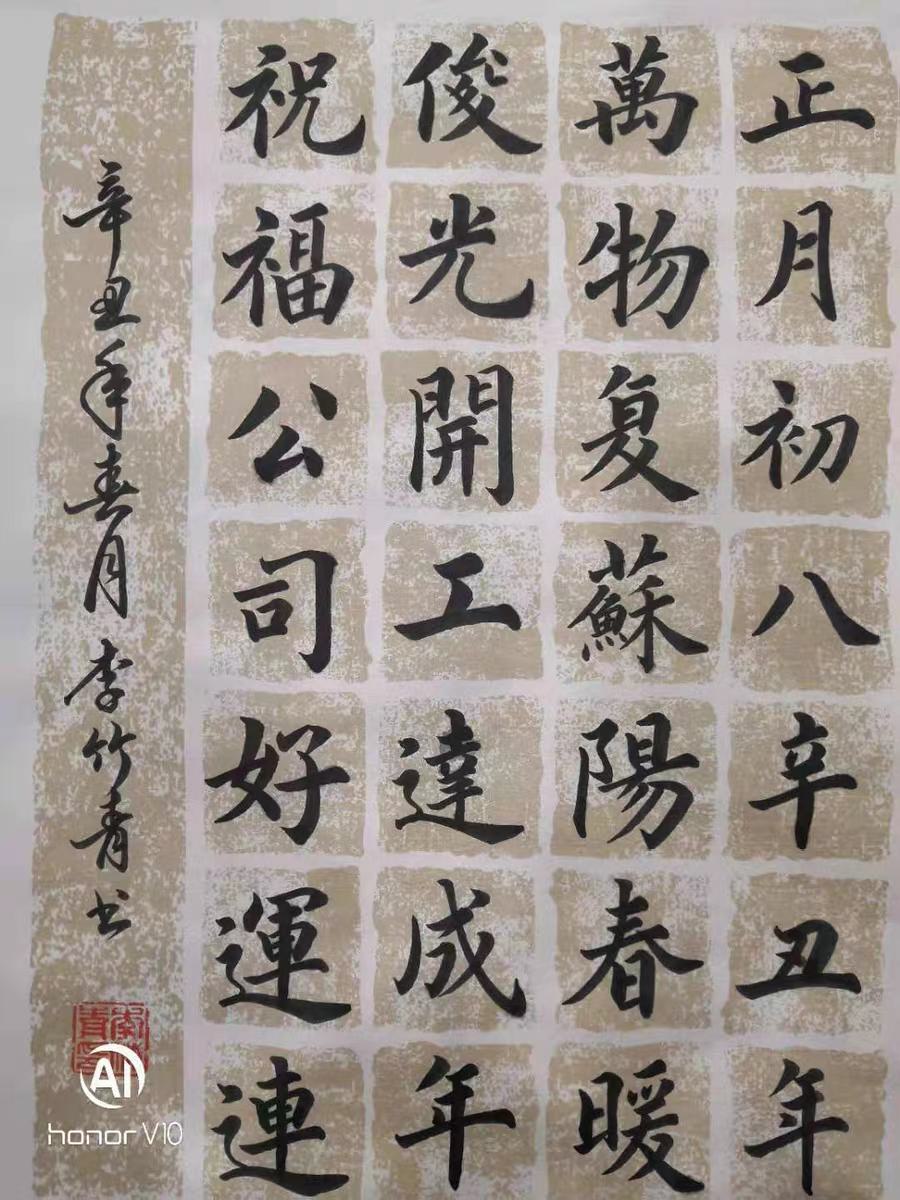 正月初八辛丑年
萬物复蘇陽春暖
俊光開工達成年
祝福公司好運連
辛丑年春月李竹青书
AI
honor V10